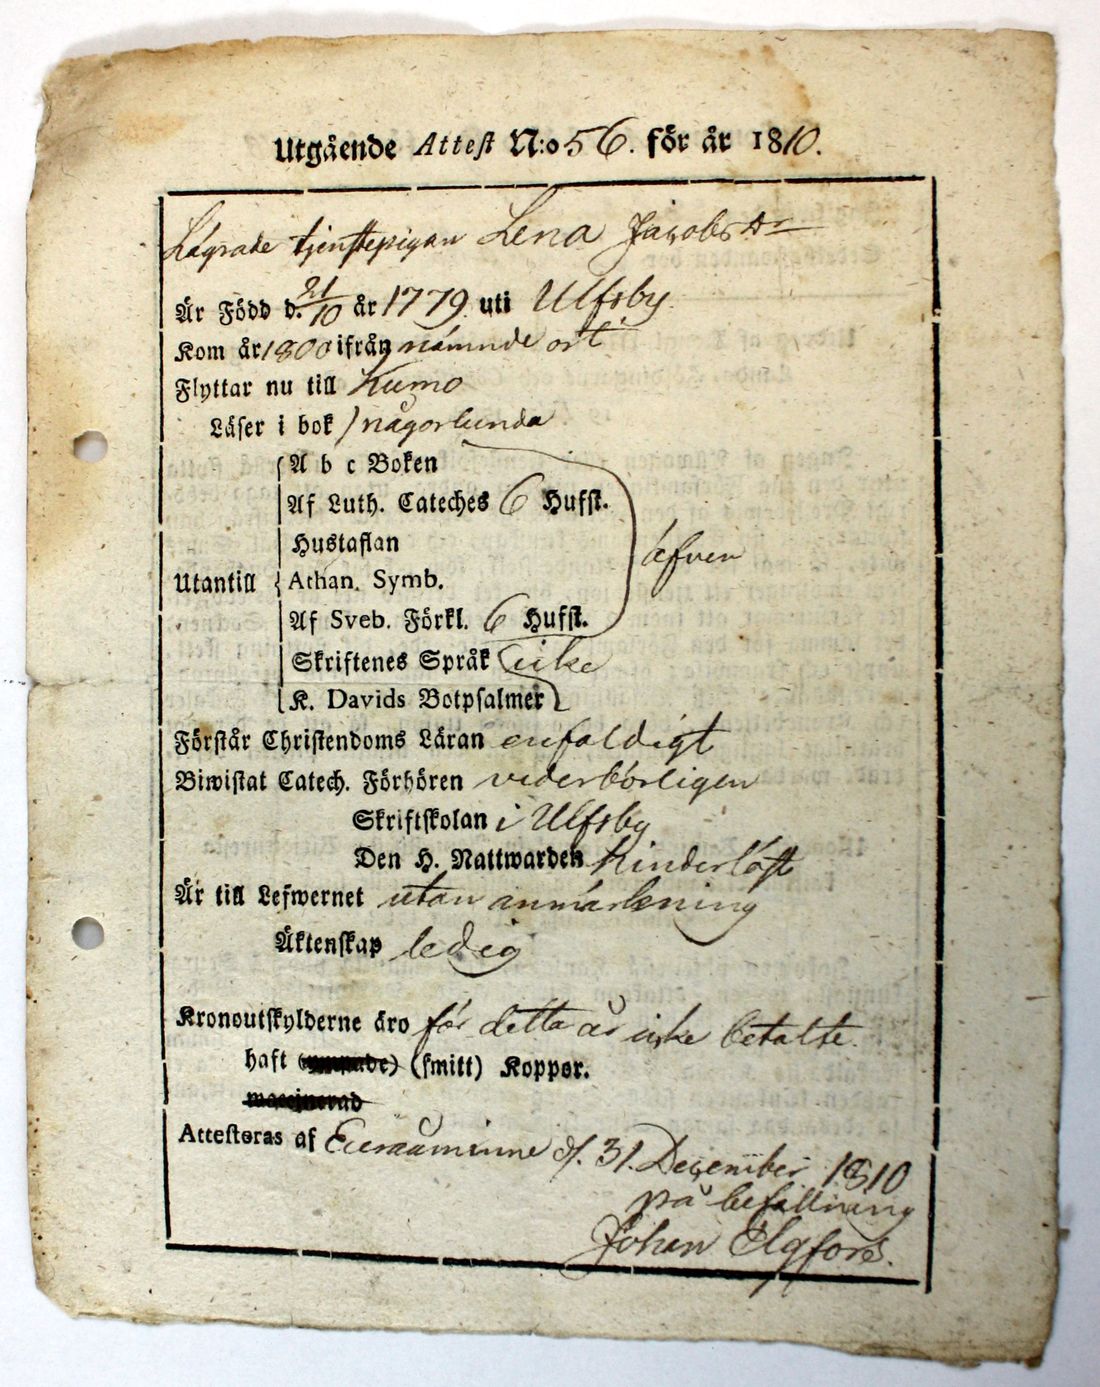 Utgående Attest N:o 56. för år 1810.
Lägrade tjenstepigan Lena Jacobs Dr
Är Född d. 21/10 år 1779. uti Ulfsby
Kom år 1800 ifrån nämnde ort
Flyttar nu till Kumo
Läser i bok någorlunda
A b c Boken
Af Luth. Cateches 6 Hufst.
Hustaflan
Utantill Athan. Symb. äfven
Af Sveb. Förkl. 6 Hufst.
Skriftenes Språk icke
K. Davids Botpsalmer
Förstår Christendoms Läran enfaldigt
Biwistat Catech. Förhören vederbörligen
Skriftskolan i Ulfsby
Den H. Nattwarden
Är till Lefwernet utan anmärkning
Äktenskap ledig
Kronoutskylderne äro för detta år icke betalte.
haft (smitt) Koppor.
Attesteras af Euraåminne d. 31. December 1810
på befallning
Johan Elgfors.